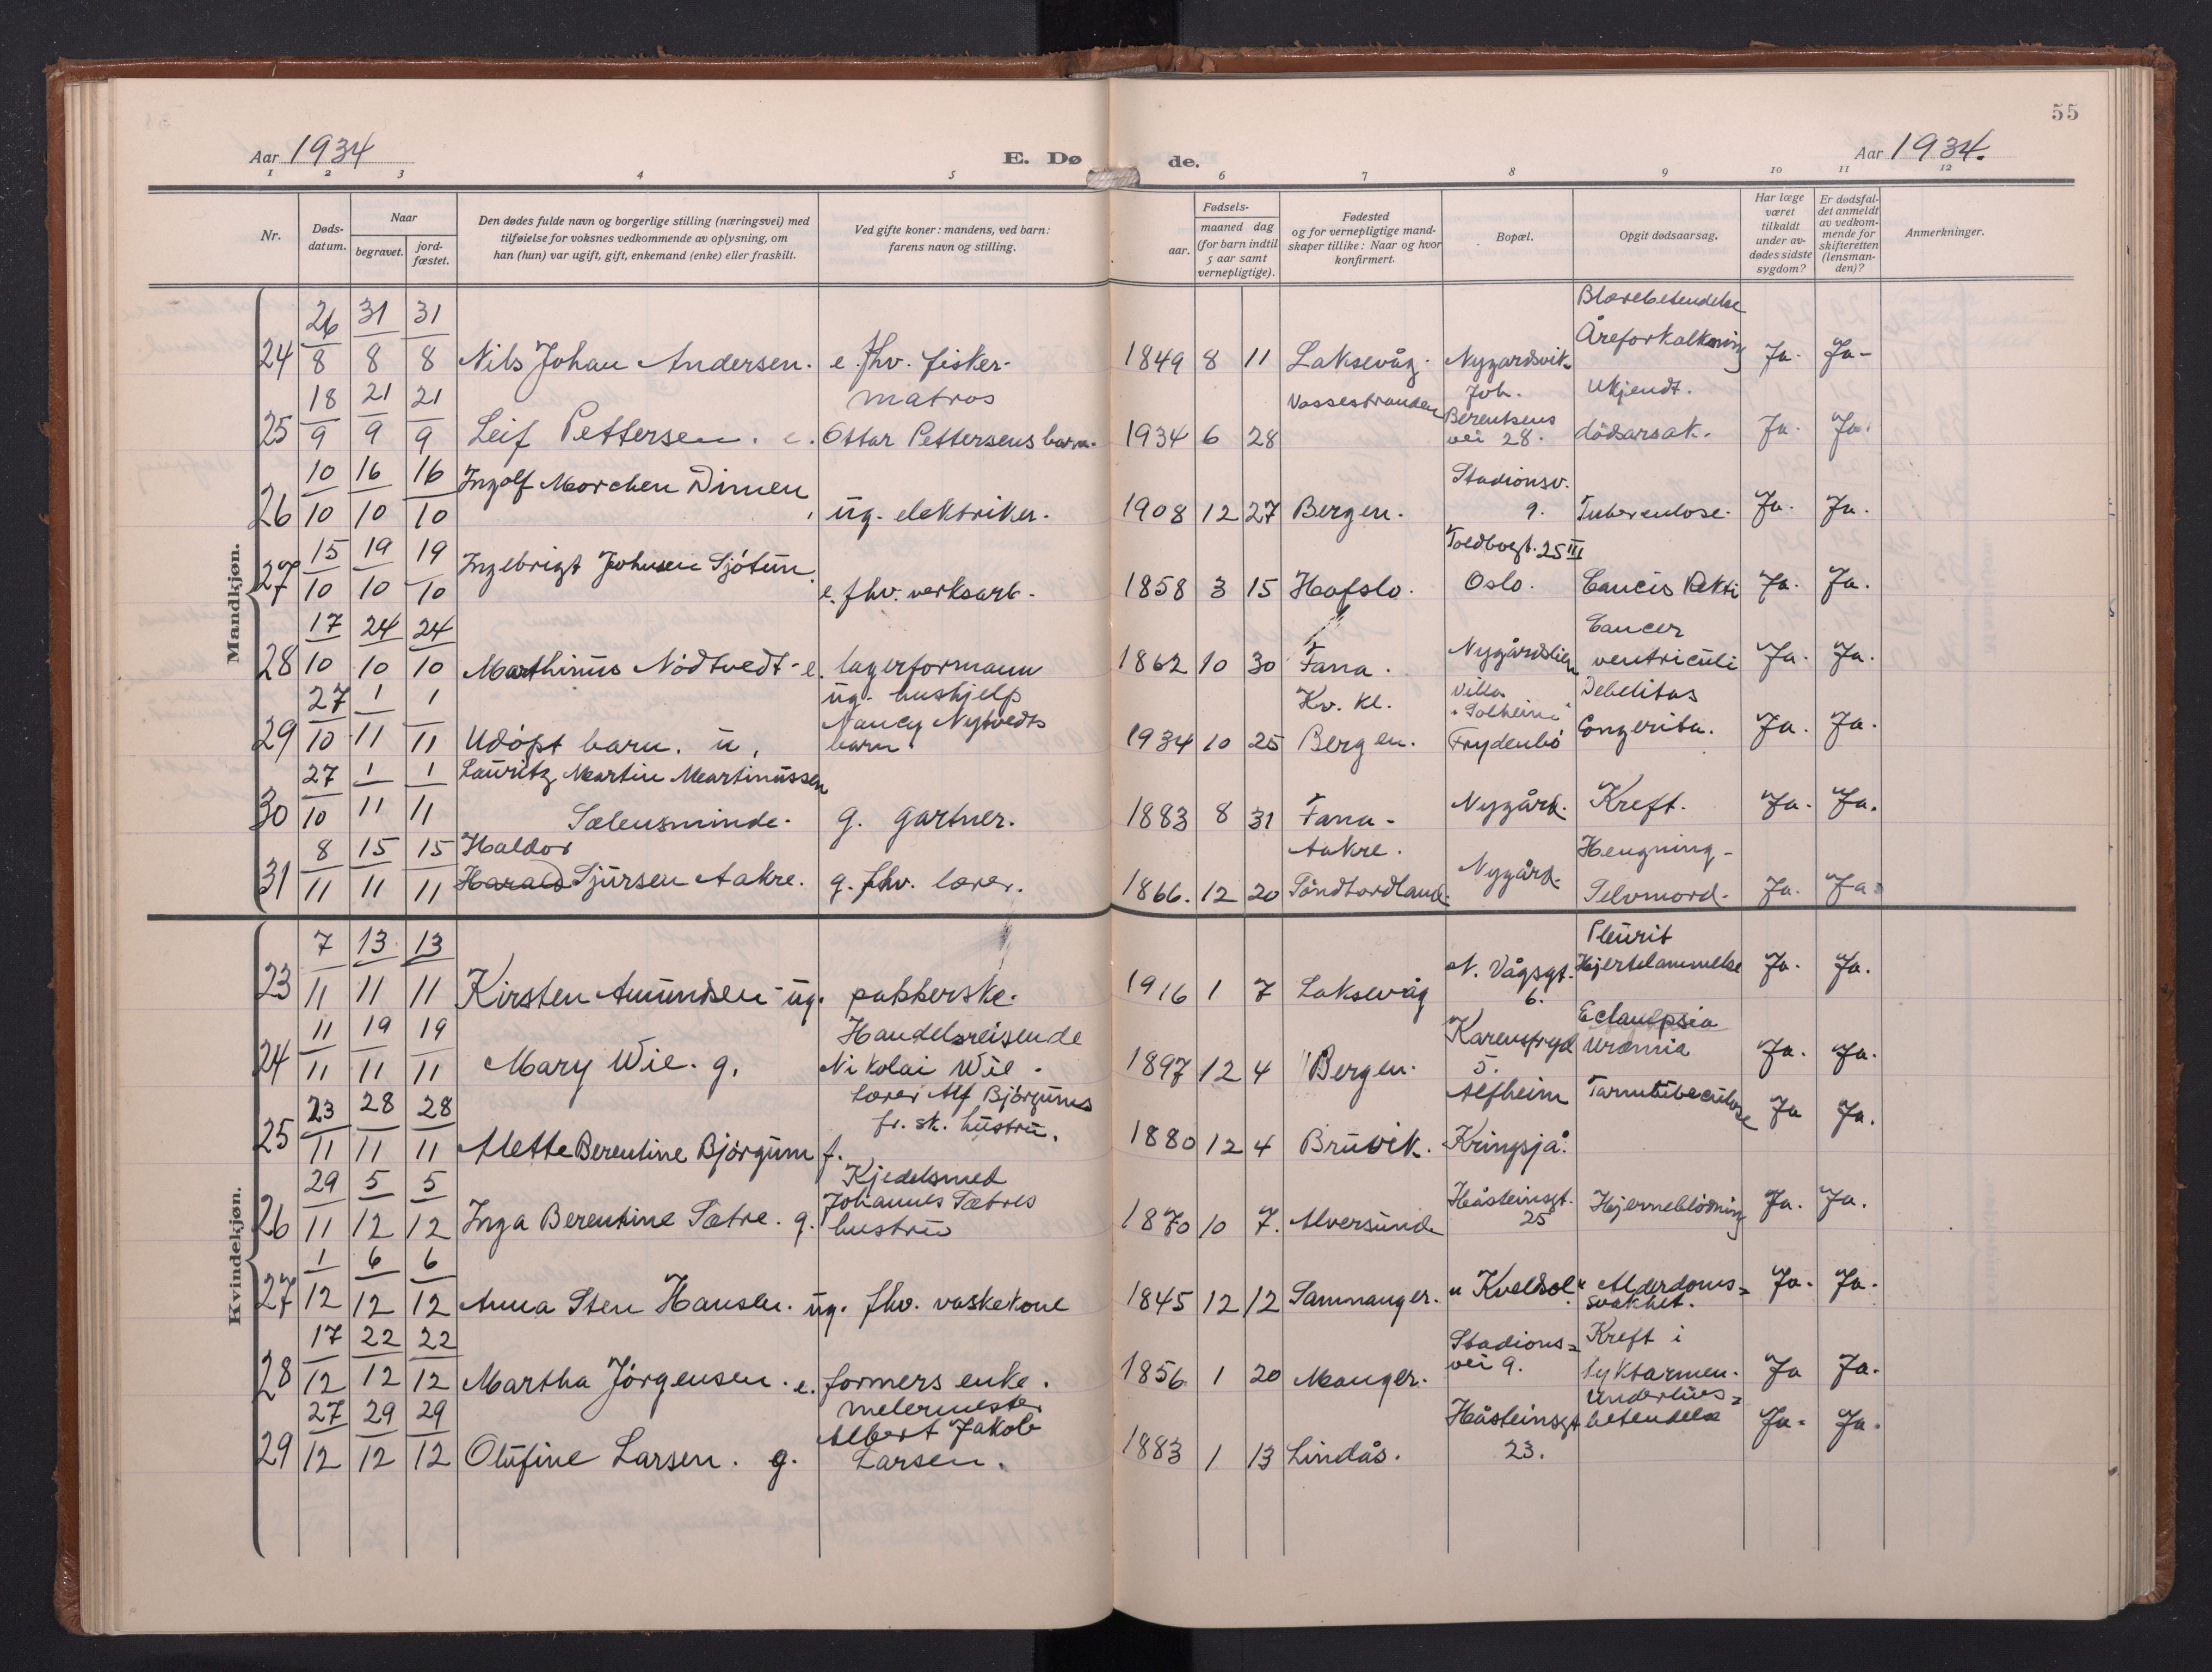 55
Aar 1934 E. Dø de. Aar 1934.
1 2 3 4 5 6 7 8 9 10 11 12
Nr. Døds-datum. Naar begravet. jord-fæstet. Den dødes fulde navn og borgerlige stilling (næringsvei) med tilføielse for voksnes vedkommende av oplysning, om han (hun) var ugift, gift, enkemand (enke) eller fraskilt. Ved gifte koner: mandens, ved barn: farens navn og stilling. aar. Fødsels- maaned dag (for barn indtil 5 aar samt vernepligtige). Fødested og for vernepligtige mand-skaper tillike: Naar og hvor konfirmert. Bopæl. Opgit dødsaarsag. Har læge været tilkaldt under av-dødes sidste sygdom? Er dødsfal-det anmeldt av vedkom-mende for skifteretten (lensman-den)? Anmerkninger.
Mandkjøn.
24 26/8 31/8 31/8 Nils Johan Andersen. e. fhv. fisker. 1849 8 11 Laksevåg. Nygardsvik. Blærebetendelse Åreforkalkning Ja. Ja-
25 18/9 21/9 21/9 Leif Pettersen. matros Ottar Pettersens barn. 1934 6 28 Vossestranden Joh. Berentsens vei 28. Ukjendt. dødsarsak. Ja. Ja.
26 10/10 16/10 16/10 Ingolf Morchen Dimen, ug. elektriker. 1908 12 27 Bergen. Stadionsv. 9. Tuberculose. Ja. Ja.
27 15/10 19/10 19/10 Ingebrigt Johnsen Sjøtun. e. fhv. verksarb. 1858 3 15 Hafslo. Toldbogt. 25 III Oslo. Cancis Rekti Ja. Ja.
28 17/10 24/10 24/10 Marthinus Nødtvedt - e. lagerformann 1862 10 30 Fana. Nygårdslien Cancer ventriculi Ja. Ja.
29 27/10 1/11 1/11 Udøpt barn. u. ug. hushjelp Nancy Nytvedts barn 1934 10 25 Kv. kl. Bergen. Villa "Solheim" Frydenbø Debelitas Congerita. Ja. Ja.
30 27/10 1/11 1/11 Lauritz Martin Martinussen Sælensminde. g. gartner. 1883 8 31 Fana - Nygård. Kreft. Ja. Ja.
31 8/11 15/11 15/11 Haldor Harald Sjursen Aakre. g. fhv. lærer. 1866. 12 20 Aakre. Søndhordland. Nygård. Hengning - Selvmord. Ja. Ja.
Kvindekjøn.
23 7/11 13/11 13/11 Kirsten Amundsen - ug. pakkerske. 1916 1 7 Laksevåg N. Vågsgt. 6. Pleurit Hjertelammelse Ja. Ja.
24 11/11 19/11 19/11 Mary Wie. g. Handelsreisende Nikolai Wie. 1897 12 4 Bergen. Karensfryd 5. Eclampsia Uræmia Ja. Ja.
25 23/11 28/11 28/11 Alette Berentine Bjørgum f. Lærer Alf Bjørgums fr. sk. hustru. 1880 12 4 Bruvik. Alfheim Kringsjå. Tarmtubeculose Ja Ja.
26 29/11 5/12 5/12 Inga Berentine Sætre. g. Kjedelsmed Johannes Sætres hustru 1870 10 7. Alversund Håsteinsgt. 25 Hjerneblödning Ja. Ja.
27 1/12 6/12 6/12 Anna Sten Hansen. ug. fhv. vaskekone 1845 12 12 Samnanger. "Kveldsol" Alderdoms= svakhet. Ja. Ja.
28 17/12 22/12 22/12 Martha Jørgensen. e. formers enke. 1856 1 20 Manger. Stadions= vei 9. Kreft i tyktarmen. Ja Ja.
29 27/12 29/12 29/12 Olufine Larsen. g. melermester Albert Jakob Larsen. 1883 1 13 Lindås. Håsteinsgt 23. Underlivs= betendelse Ja. Ja.